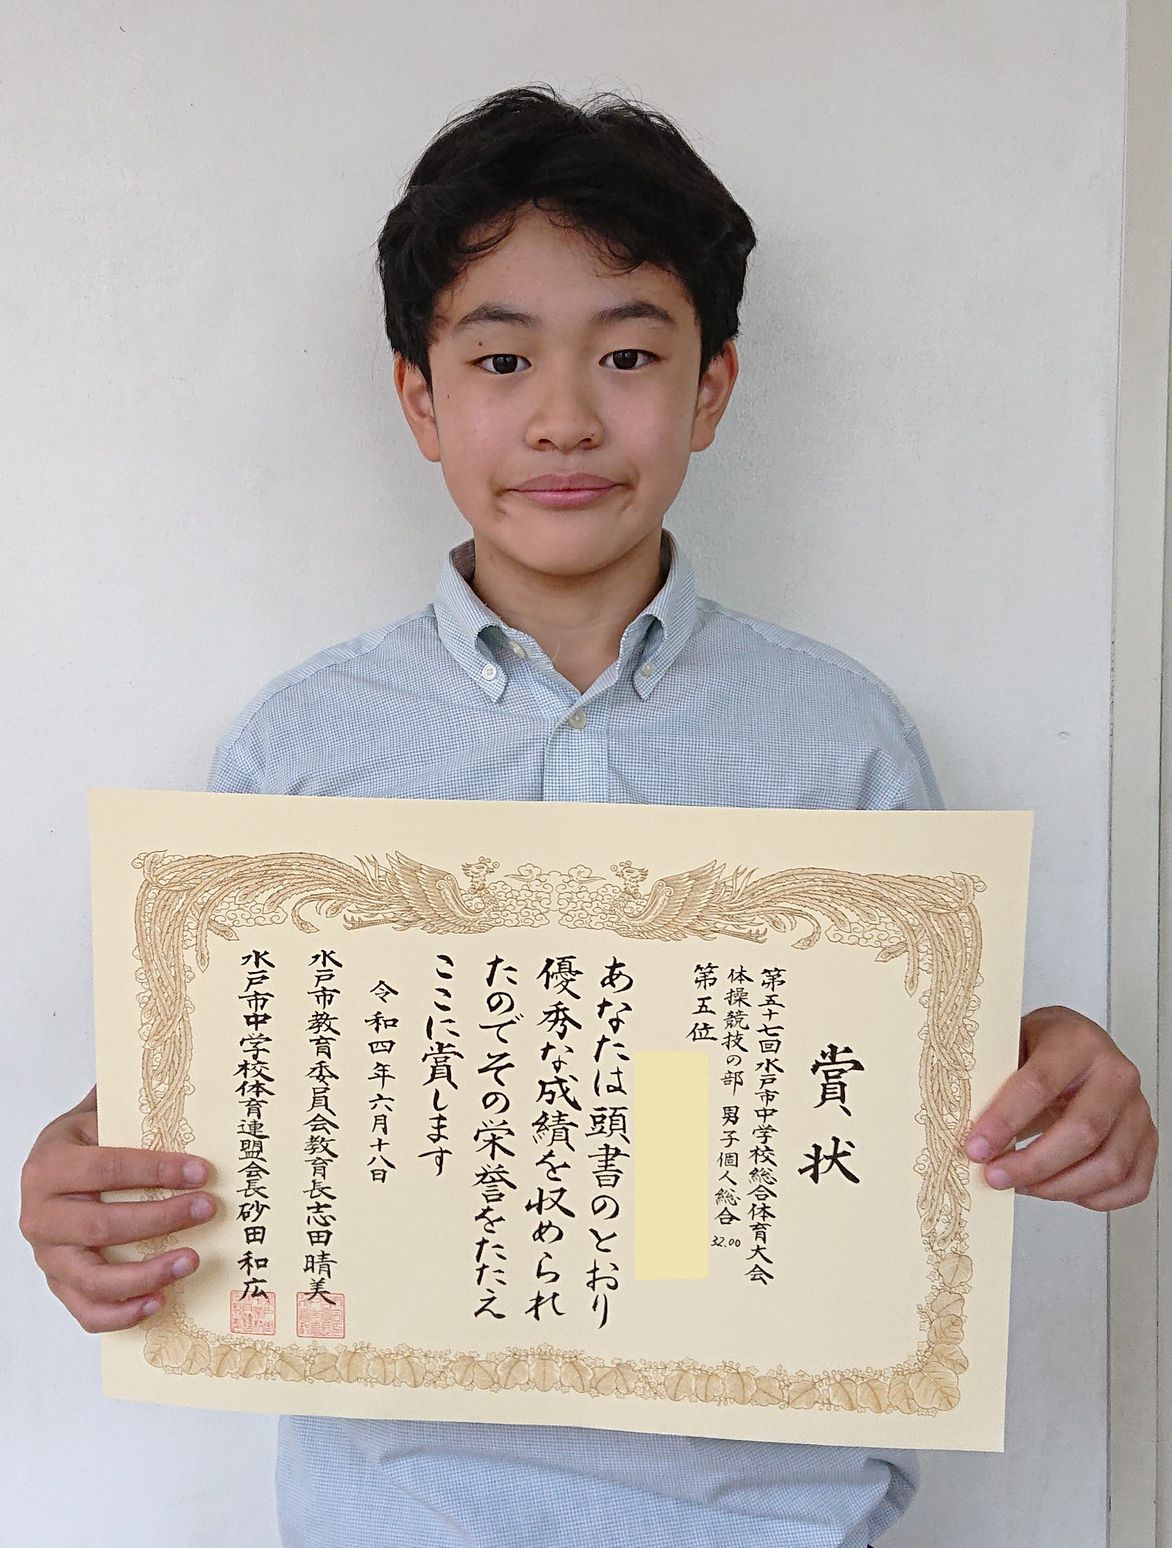 賞状
第五十七回水戸市中学校総合体育大会
体操競技の部 男子個人総合 32.00
第五位
あなたは頭書のとおり
優秀な成績を収められ
たのでその栄誉をたたえ
ここに賞します
令和四年六月十八日
水戸市教育委員会教育長志田晴美
水戸市中学校体育連盟会長砂田和広